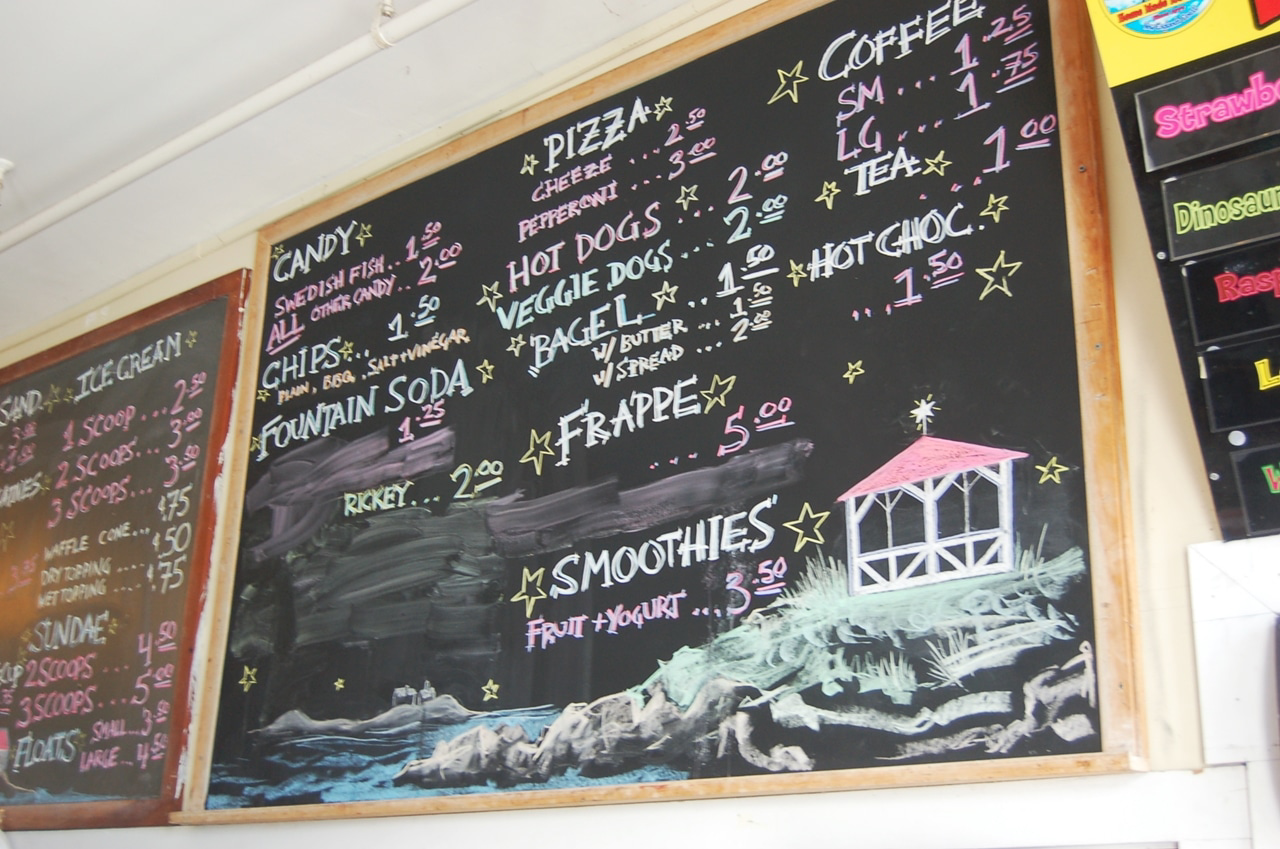 SAND.
ICE CREAM
1 SCOOP ... 2.50
2 SCOOPS... 3.00
3 SCOOPS... 3.50
WAFFLE CONE... .75
DRY TOPPING .... .50
WET TOPPING .... .75
SUNDAE
2 SCOOPS ... 4.50
3 SCOOPS.... 5.00
FLOATS SMALL... 3.50
LARGE... 4.50
CANDY
SWEDISH FISH.. 1.50
ALL OTHER CANDY.. 2.00
CHIPS... 1.50
PLAIN, BBQ, SALT+VINEGAR,
FOUNTAIN SODA
1.25
RICKEY... 2.00
PIZZA
CHEEZE ... 2.50
PEPPERONI ... 3.00
HOT DOGS ... 2.00
VEGGIE DOGS ... 2.00
BAGEL .. 1.50
W/ BUTTER ... 1.50
W/ SPREAD ... 2.00
FRAPPE
.... 5.00
SMOOTHIES
FRUIT + YOGURT ... 3.50
COFFEE
SM ... 1.25
LG .... 1.75
TEA
.... 1.00
HOT CHOC.
... 1.50